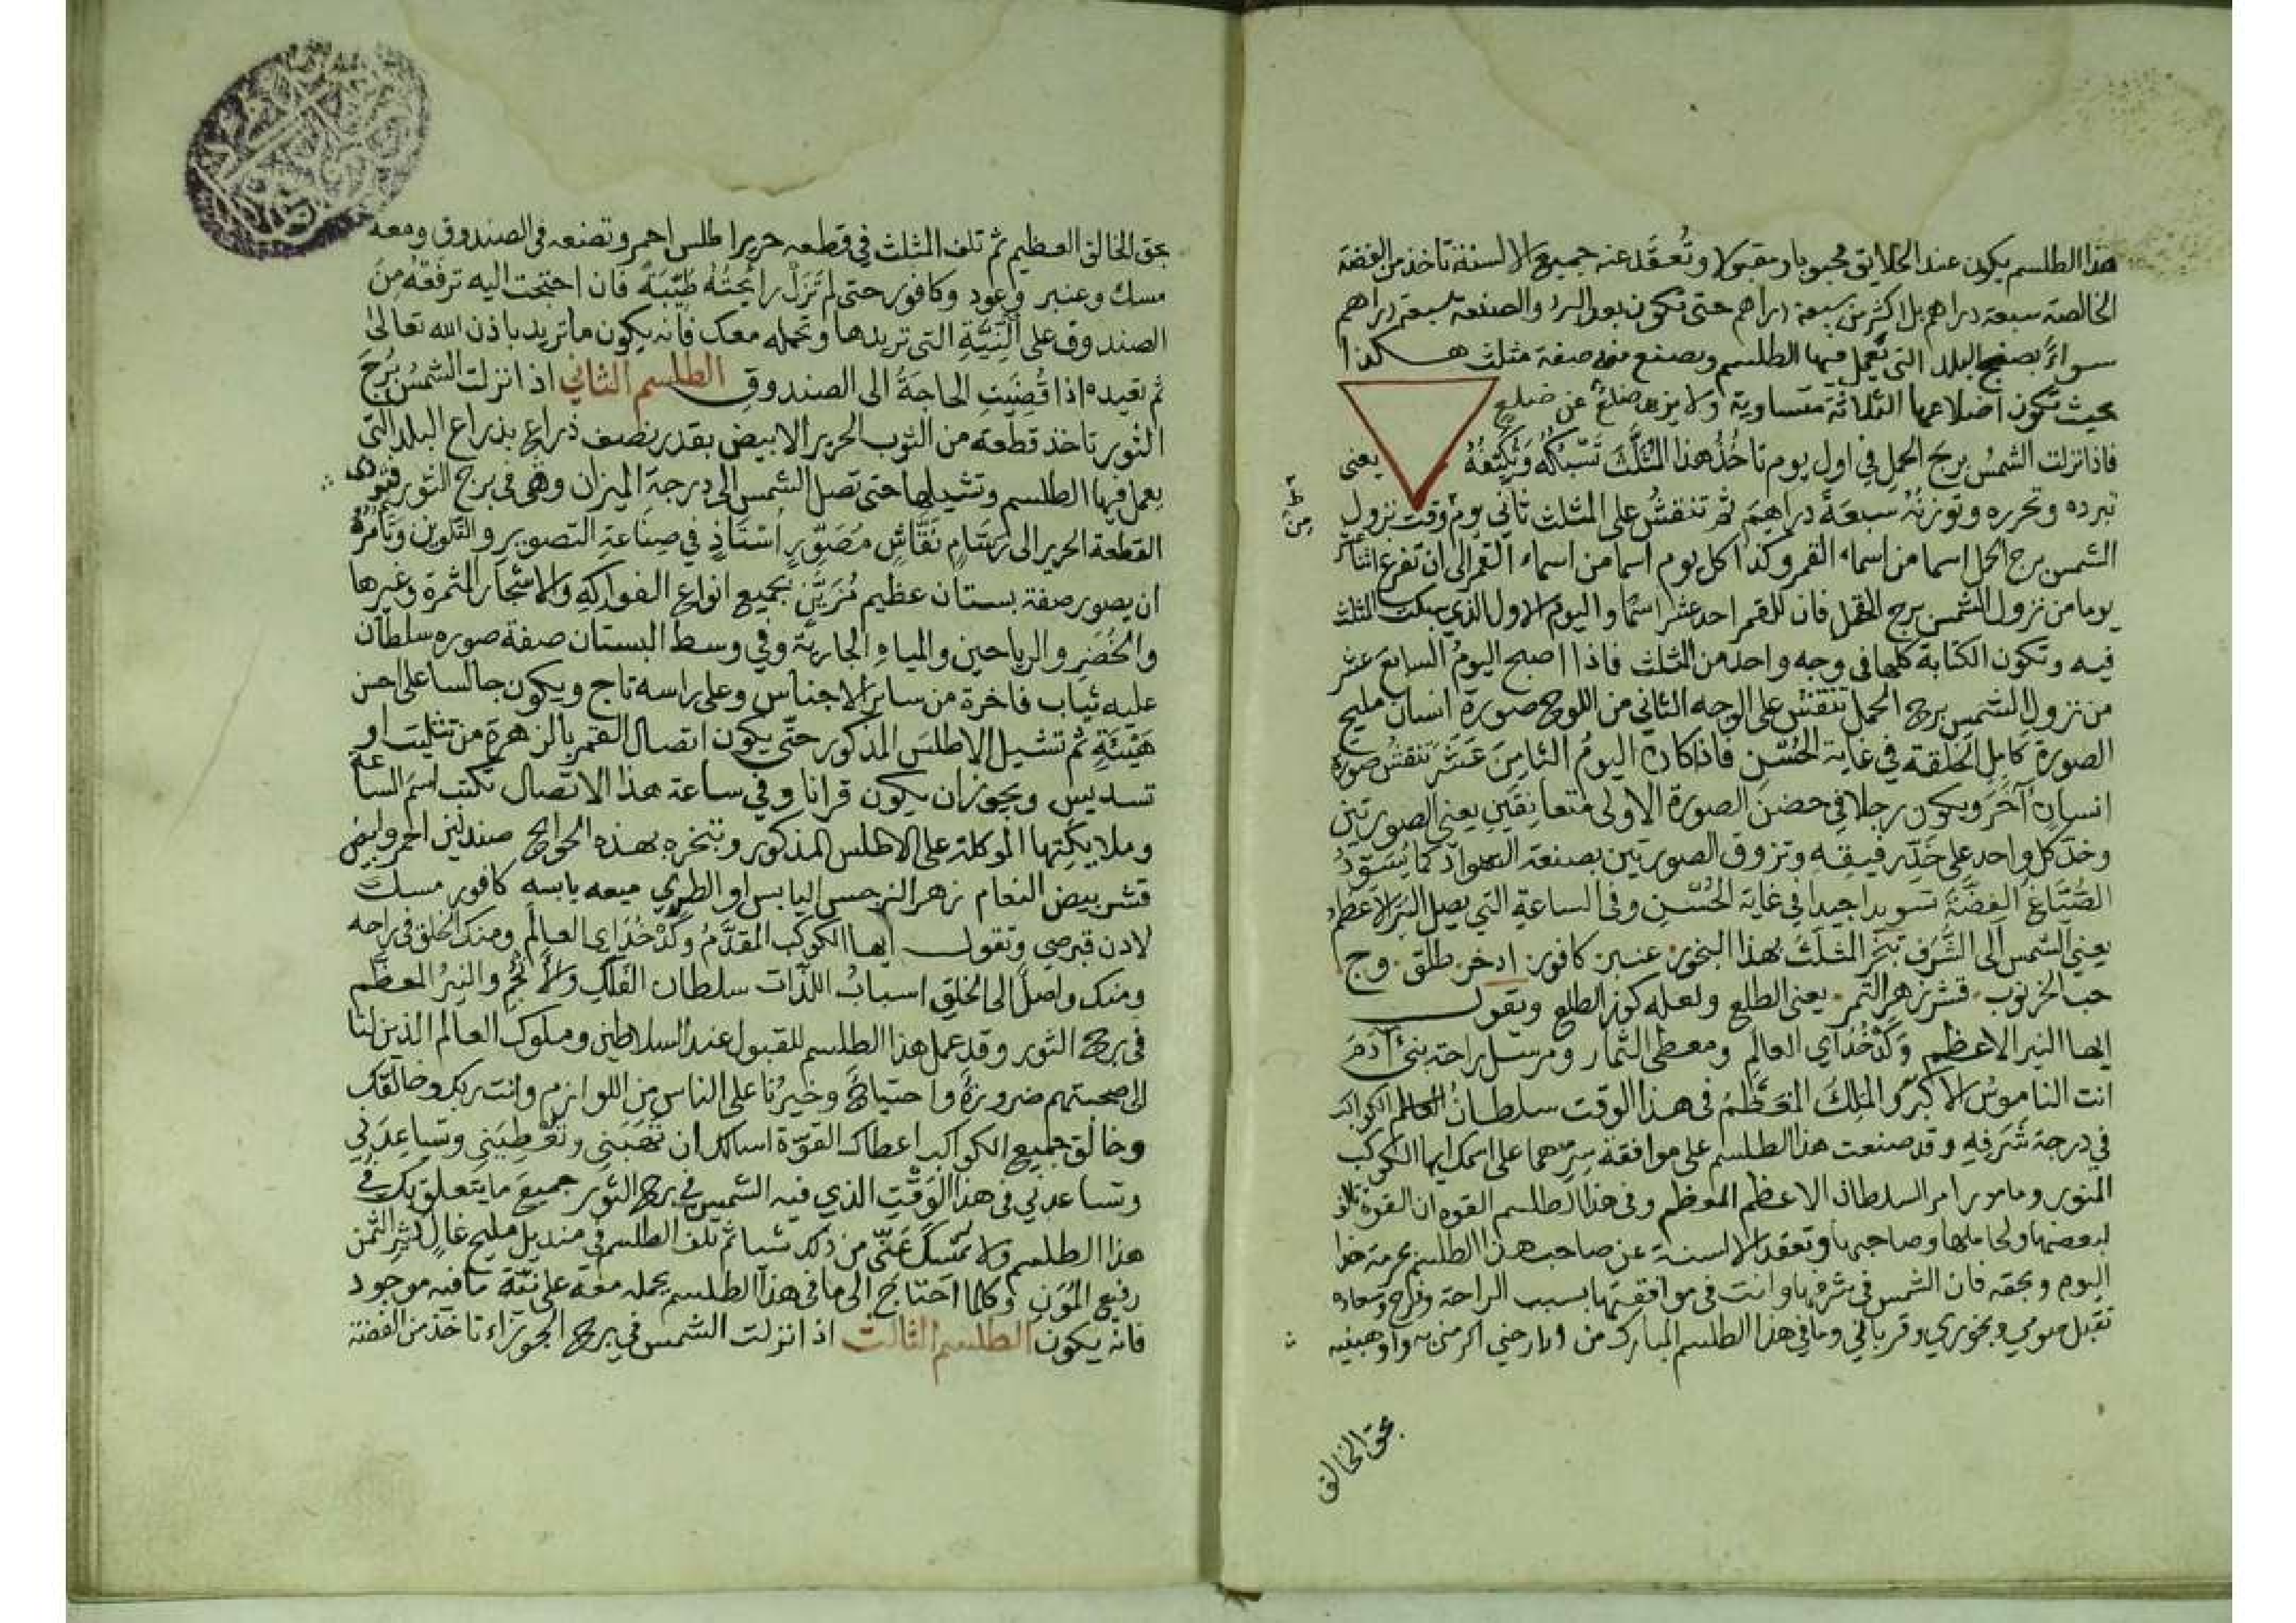 هذا الطلسم يكون عند الخلايق محبوبا ومقبولا وتُعقَد عنه جميع الالسنة تاخذ من الفضة
الخالصة سبعة دراهم بل اكثر من سبعة دراهم حتى تكون بعد البرد والصنعة سبعة دراهم
سواءً بصنج البلد التى تعمل فيها الطلسم ويصنع منه صفة مثلث هكذا
بحيث تكون اضلاعها الثلاثة متساوية ولا يزيد ضلع عن ضلع
فاذا نزلت الشمس برج الحمل في اول يوم تاخُذُ هذا المثلث تَسْبُكُه يعنى
تبرده وتحرره وتوزنُه سبعةَ دراهيم ثم تنقشُ على المثلث ثاني يوم وقت نزول
الشمس برج الحمل اسما من اسماء القمر وكذا كل يوم اسما من اسماء القمر الى ان تفرغ اثنا عشر
يوما من نزول الشمس برج الحمل فان للقمر احد عشر اسمًا واليوم الاول الذي سبكت المثلث
فيه وتكون الكتابة كلها فى وجه واحد من المثلث فاذا اصبح اليومُ السابعَ عشر
من نزول الشمس برج الحمل تنقش على الوجه الثانى من اللوح صورة انسان مليح
الصورة كامل الخلقة في غاية الحُسْن فاذا كان اليومُ الثامِنَ عَشَرَ تنقش صورة
انسانٍ آخَرَ ويكون رجلا في حضن الصورة الاولى متعانِقَين يعنى الصورتين
وخد كل واحد على خد رفيقه وتزوق الصورتين بصنعة السواد كما يُسَوِّدُ
الصُّيَّاغ الفضَّةَ تسويدا جيدا في غاية الحُسْن وفى الساعة التي يصل النير الاعظم
يعنى الشمس الى الشَّرَف تبخر المثلثَ بهذا البخور عنبر كافور ادخر طلق وج
حب الخرنوب قشر زهر التمر يعنى الطلع ولعله كوز الطلع وتقول
ايها النير الاعظم وكَدْخُدَاى العالم ومعطى الثمار ومرسل راحة بنى آدَمَ
انت الناموسُ الاكبر والملِكُ المُعَظَّمُ فى هذا الوقت سلطانُ العالم الكواكب
في درجة شَرَفِه وقد صنعت هذا الطلسم على موافقة سِرِّهما على اسمك ايها الكوكب
المنور وما مور امر السلطان الاعظم المعظم وفى هذا الطلسم القوه ان القوة
لبعضها ولحاملها وصاحبها وتعقد الالسنة عن صاحب هذا الطلسم بحرمة هذا
اليوم وبحقه فان الشمس في شرفها وانت فى موافقتها بسبب الراحة وفرح وسعاده
تقبل صومي وبخوري وقرباني وما في هذا الطلسم المبارك من
بحق الخالق
بحق الخالق العظيم ثم تلف المثلث في قطعه حرير اطلس احمر وتضعه فى الصندوق ومعه
مسك وعنبر وعود وكافور حتى لم تَزَلْ رايحتُهُ طيّبَةً فان احتجت اليه ترفَعُهُ مِنَ
الصندوق على النِّيَّةِ التى تريدها وتحمله معك فانه يكون ما تريد باذن الله تعالى
ثم تعيده اذا قُضِيَتِ الحاجةُ الى الصندوق الطلسم الثاني اذا نزلت الشمسُ بُرجَ
الثور تاخذ قطعة من الثوب الحرير الابيض بقدر نصف ذراع بذراع البلد التى
يعمل فيها الطلسم وتشيلها حتى تصل الشمس الى درجة الميزان وهى فى برج الثور
القطعة الحرير الى رسَّامٍ نَقَّاشٍ مُصَوِّرٍ اُسْتَاذٍ في صِناعةِ التصوير والتلوين وتَامُرُهُ
ان يصور صفة بستان عظيم مُزَيَّن بجميع انواع الفواكهِ والاشجار المثمرة وغيرها
والخُضَرِ والرياحين والمياهِ الجارية وفي وسط البستان صفة صوره سلطان
عليه ثياب فاخرة من ساير الاجناس وعلى راسه تاج ويكون جالسا على احسن
هَيْئةٍ ثم تشيل الاطلسَ المذكور حتى يكون اتصال القمر بالزهرة من تثليث او
تسديس ويجوز ان يكون قرانا وفي ساعة هذا الاتصال تكتب اسم الساعة
وملايكتها الموكلة على الاطلس المذكور وتبخره بهذه الحوايج صندلين احمر وابيض
قشر بيض النعام زهر النرجس اليابس او الطري ميعه يابسه كافور مسك
لادن قبرصي وتقول ايها الكوكب المقدَّمُ وكَدْخُدَاى العالم ومنك الخلق فى راحه
ومنك واصل الى الخلق اسبابُ اللذات سلطان الفلك والانجُمِ والنيرُ المعظم
فى برج الثور وقد عمل هذا الطلسم للقبول عند السلاطين وملوك العالم الذين لنا
الى صحبتهم ضرورةً واحتياجًا وخيرُنا على الناس من اللوازم وانت بربك وخالقك
وخالق جميع الكواكب اعطاك القوّة اسالك ان تهَبَنى وتُعْطِيَنى وتساعِدَنى
وتساعدني فى هذا الوَقْتِ الذي فيه الشمس فى برج الثور جميعَ ما يتعلق بك فى
هذا الطلسم ولا تُمْسِكْ عَنّى من ذلك شيا ثم تلف الطلسم فى منديل مليح غالٍ كثير الثمن
رفيع اللون وكلما احتاج الى ما فى هذا الطلسم يحمله معه على نيّة ما فيه موجود
فانه يكون الطلسم الثالث اذا نزلت الشمس في برج الجوزاء تاخذ من الفضة